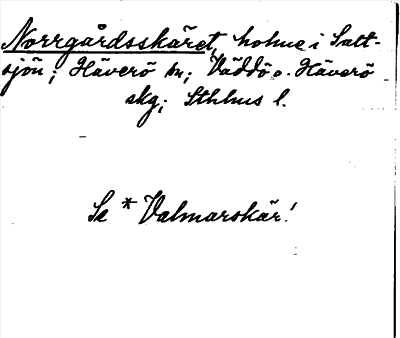 Norrgårdsskäret, holme i Salt-
sjön; Häverö sn; Väddö o. Häverö
skg; Sthlms l.
Se * Valmarskär!